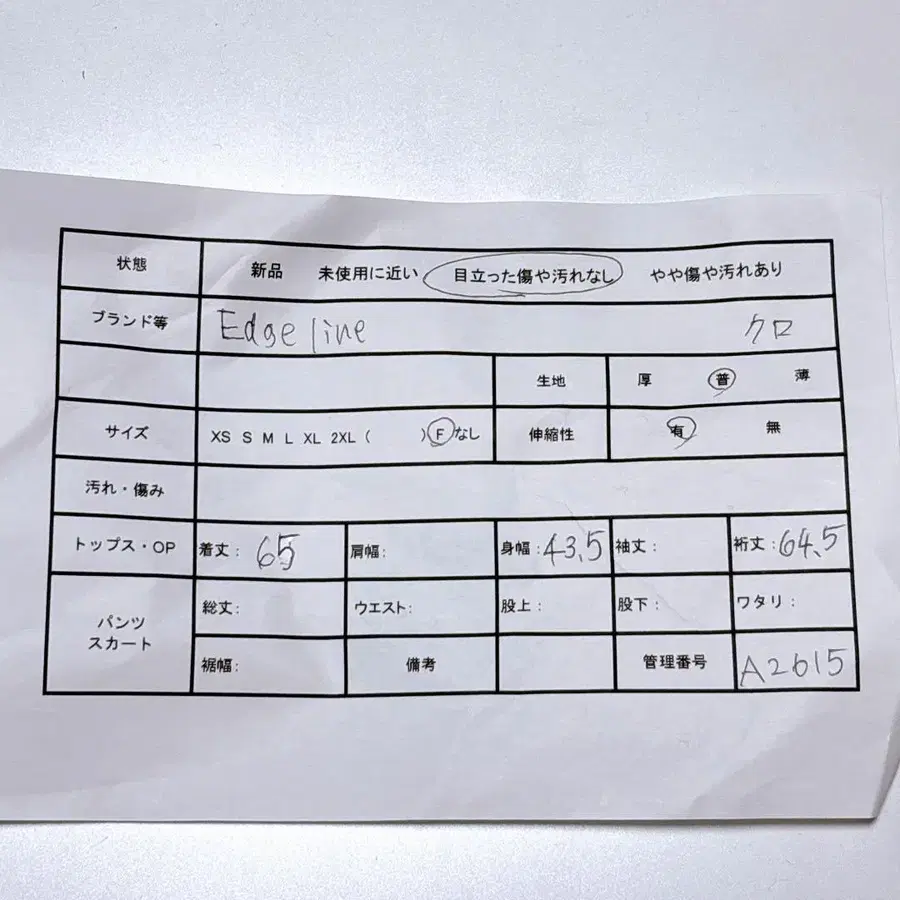 状態 新品 未使用に近い 目立った傷や汚れなし やや傷や汚れあり
ブランド等 Edge line クロ
生地 厚 普 薄
サイズ XS S M L XL 2XL ( ) F なし 伸縮性 有 無
汚れ・傷み
トップス・OP 着丈: 65 肩幅: 身幅: 43.5 袖丈: 裄丈: 64.5
パンツ スカート 総丈: ウエスト: 股上: 股下: ワタリ:
裾幅: 備考 管理番号 A2615